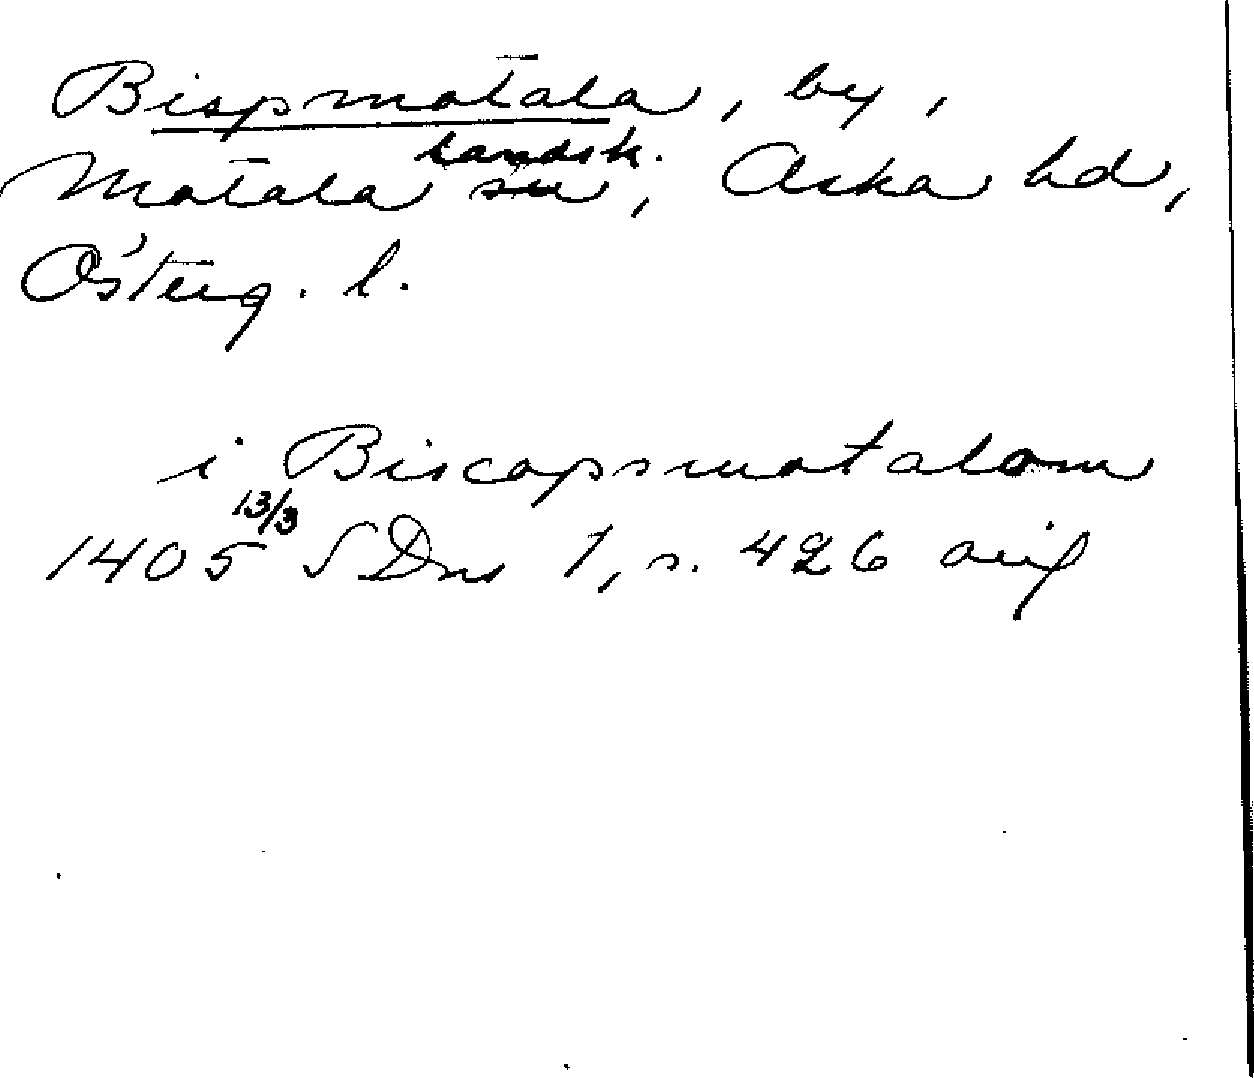 Bispmotala, by,
landsk.
Motala sn, Aska hd,
Österg. l.
i Biscopsmotalom
13/3
1405 SDns 1, s. 426 avif